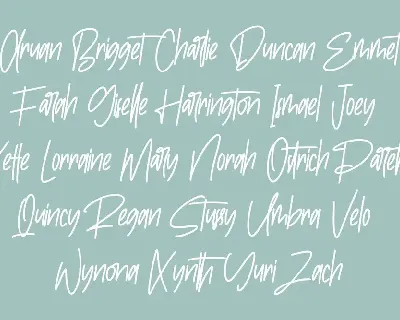 Brigget Charlie Duncan Emmet
Farah Giselle Harrington Ismael Joey
Lorraine Mary Norah Ostrich
Quincy Regan Stussy Umbra Velo
Wynona Xynth Yuri Zach